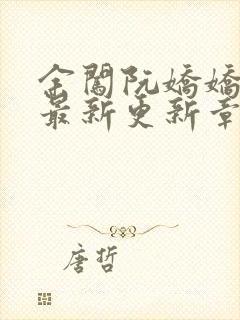 金閣阮嬌嬌
最新更新章
唐哲